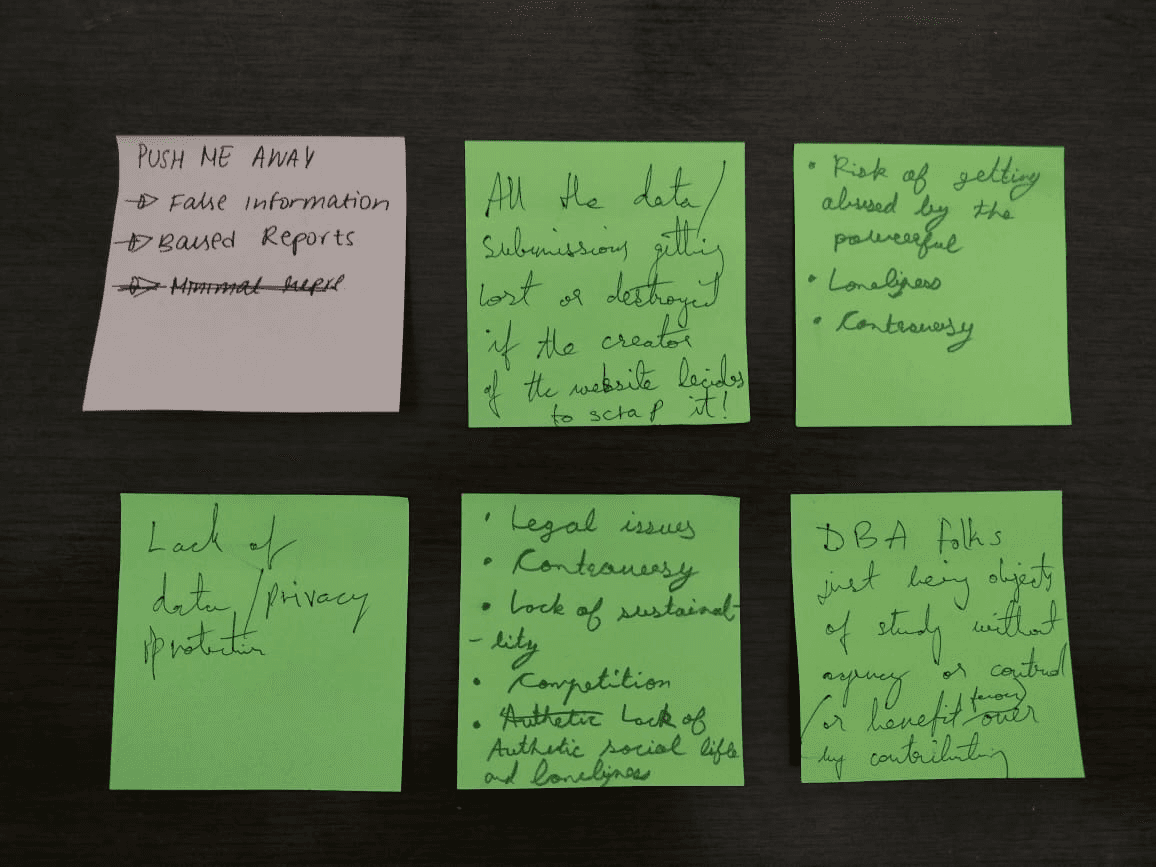 PUSH ME AWAY
False information
Baised Reports
Minimal
All the data/
submissions getting
lost or destroyed
if the creator
of the website decides
to scrap it!
• Risk of getting
abused by the
powerful
• Loneliness
• Controversy
Lack of
data/privacy
protection
• Legal issues
• Controversy
• Lack of sustainabi-
-lity
• Competition
• Authetic Lack of
Authetic social life
and loneliness
DBA folks
just being objects
of study without
agency or control
/or benefit over
by contributing